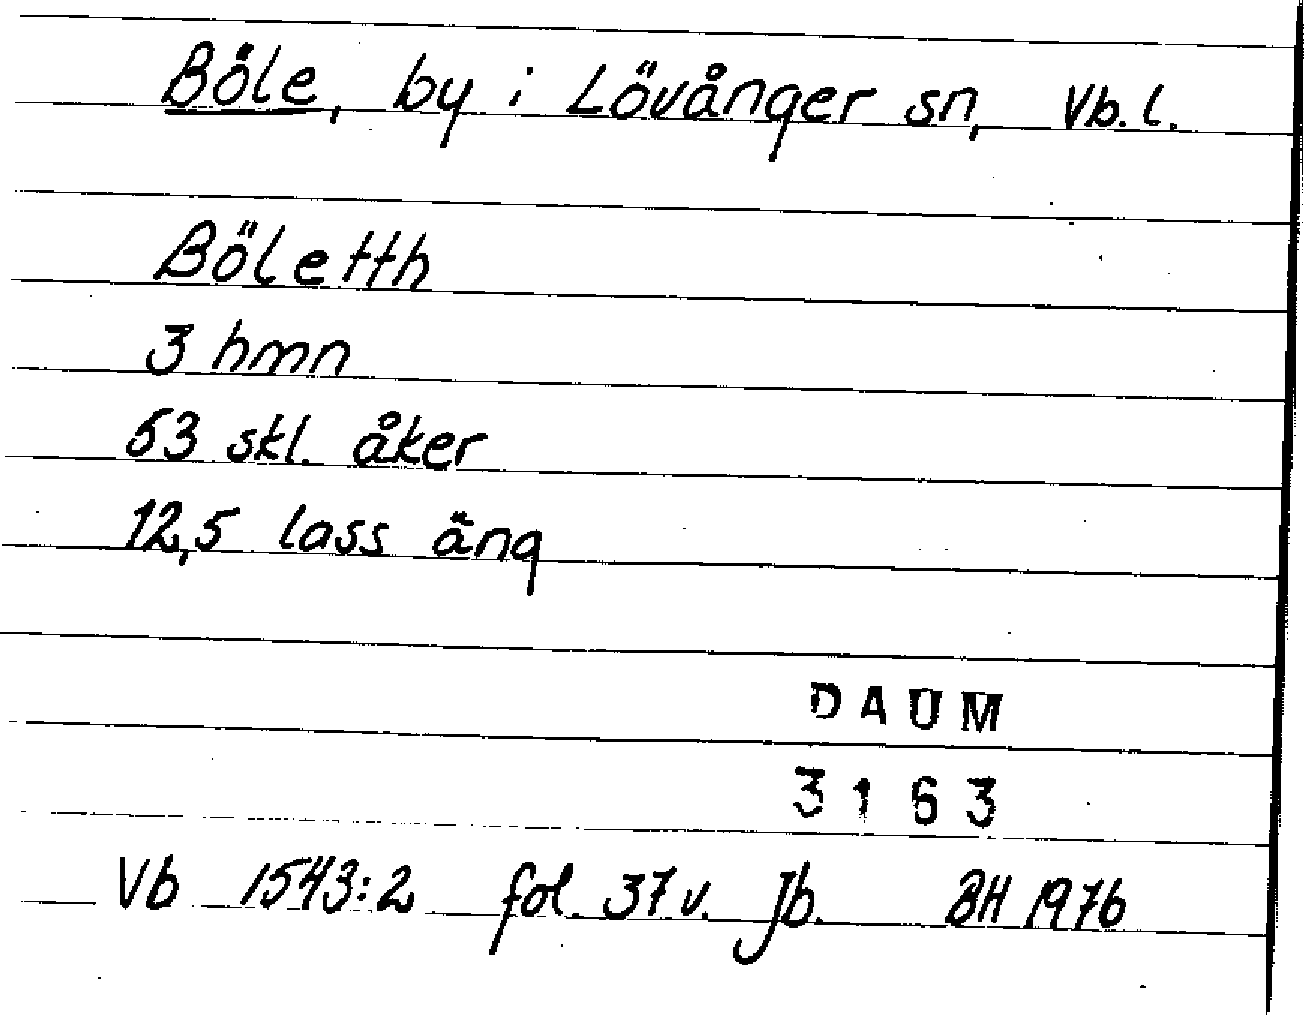 Böle, by i Lövånger sn, Vb. l.
Böletth
3 hmn
53 skl. åker
12,5 lass äng
DAUM
3163
Vb 1543:2 fol. 37 v. Jb. BH 1976